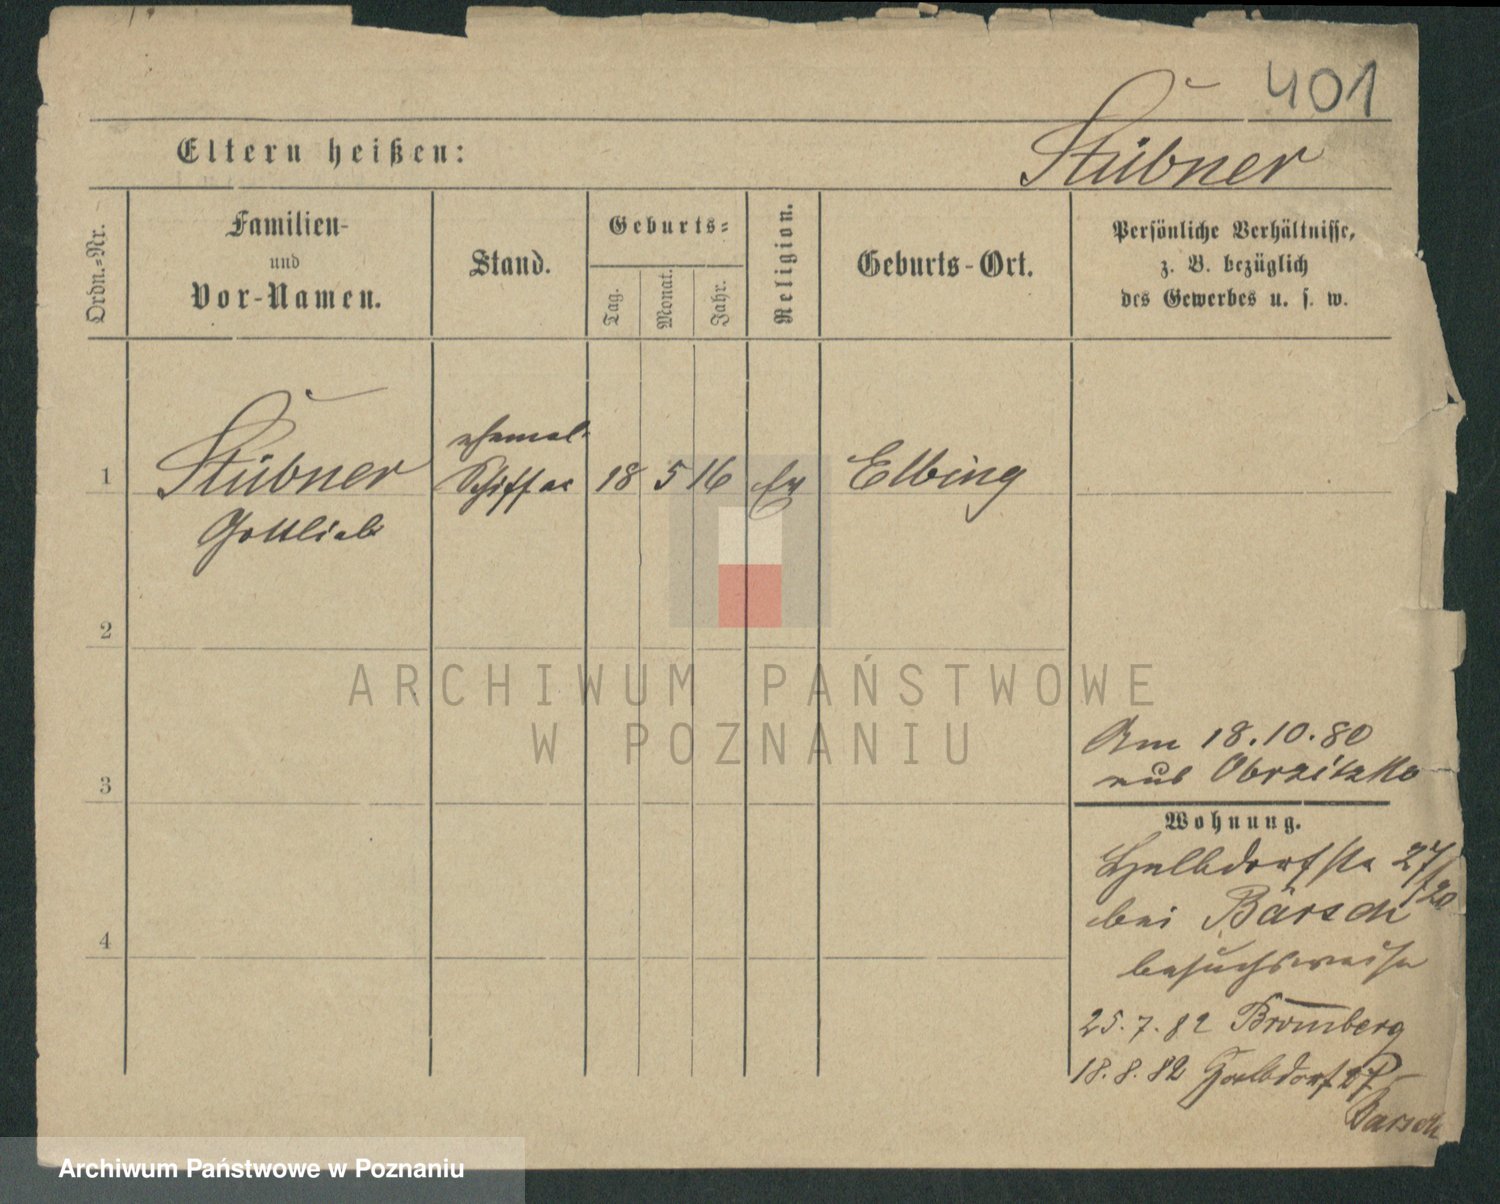 401
Eltern heißen:
Stübner
Ordn.-Nr.
Familien-
und
Vor-Namen.
Stand.
Geburts-
Tag.
Monat.
Jahr.
Religion.
Geburts-Ort.
Persönliche Verhältnisse,
z. B. bezüglich
des Gewerbes u. s. w.
1
Stübner
Gottlieb
ehemal.
Schiffer
18
5
16
Ev
Elbing
2
3
4
Am 18.10.80
aus Obrzitzko
Wohnung.
Halbdorfstr 27/20
bei Bärsch
besuchsweise
25.7.82 Bromberg
18.8.82 Halbdorf 27
Barsch
ARCHIWUM PAŃSTWOWE
W POZNANIU
Archiwum Państwowe w Poznaniu